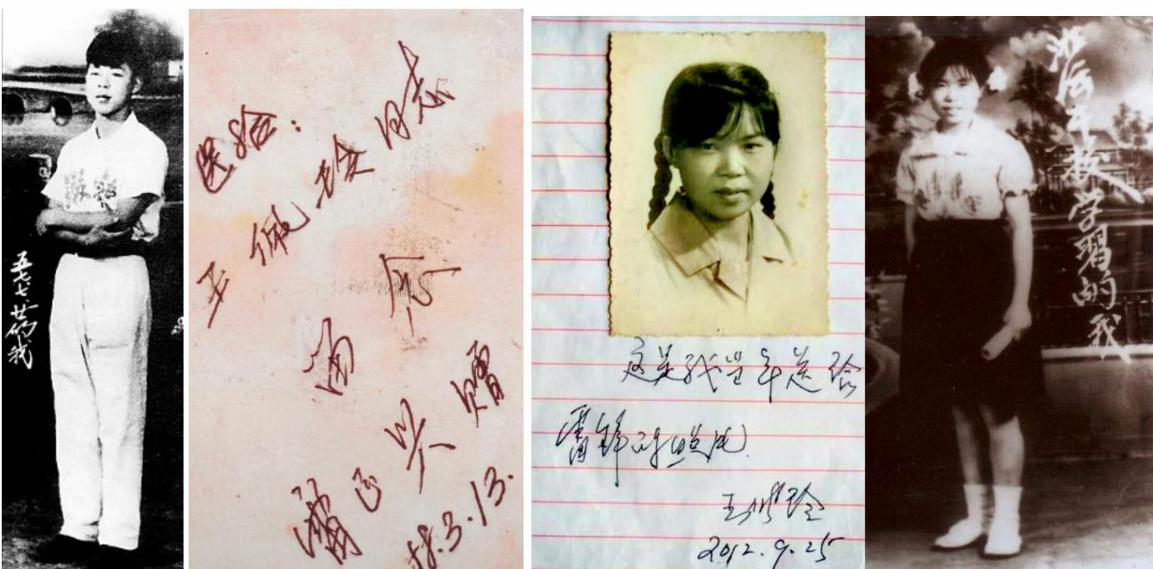 五七.七.廿的我
送给：
王佩玲同志
留念
雷正兴赠
58.3.13.
这是我当年送给
雷锋的照片.
王佩玲
2012.9.25
干校学习的我